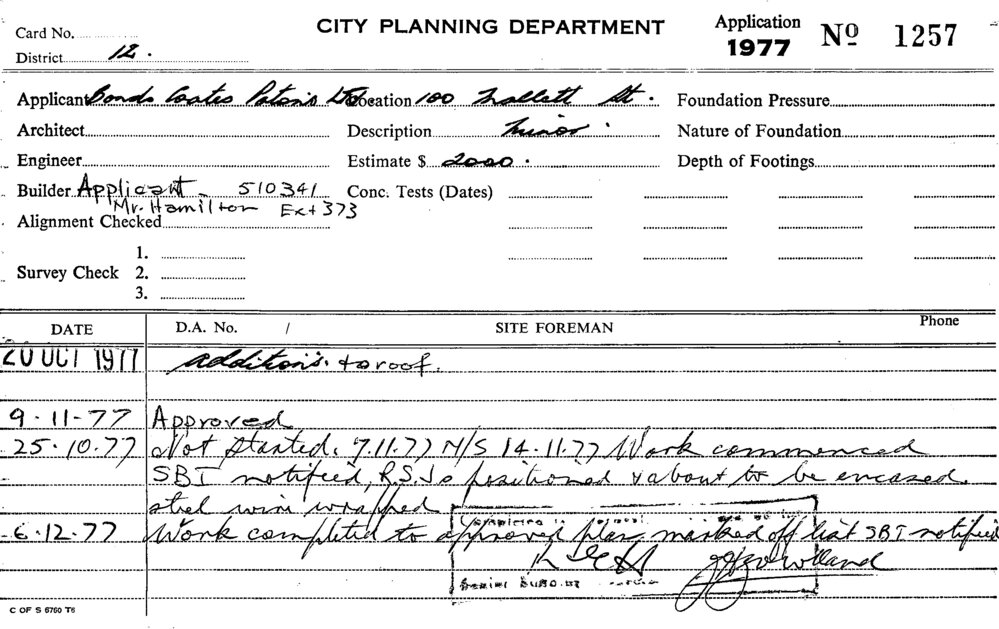 Card No.
CITY PLANNING DEPARTMENT
Application 1977 No 1257
District 12.
Applicant Bonds Coates Patons Ltd Location 100 Mallett St.
Foundation Pressure
Architect
Description Minor.
Nature of Foundation
Engineer
Estimate $ 2000.
Depth of Footings
Builder Applicant - 510341
Conc. Tests (Dates)
Mr. Hamilton Ext 373
Alignment Checked
Survey Check 1.
2.
3.
DATE D.A. No. / SITE FOREMAN Phone
20 OCT 1977 additions. to roof.
9-11-77 Approved
25.10.77 Not Started. 7.11.77 N/S 14.11.77 Work commenced
SBI notified, R.S.Js positioned & about to be encased.
steel wire wrapped
6.12.77 Work completed to approved plan, marked off list SBI notified
Senior
C OF S 6760 T6